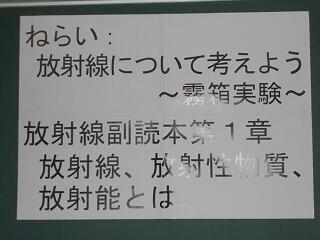 ねらい：
放射線について考えよう
～霧箱実験～
放射線副読本第１章
放射線、放射性物質、
放射能とは